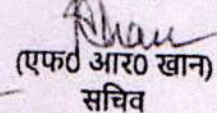 (एफ0 आर0 खान)
सचिव